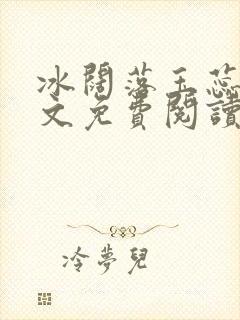 冰閣落玉蕊
文免費閱讀
冷夢兒